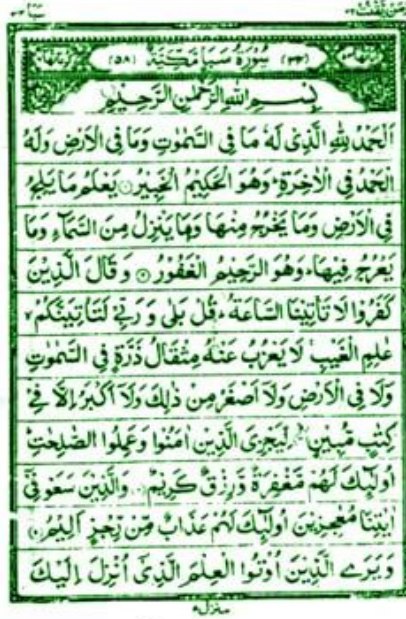 سَبَا ٣٤
وَمَنْ يَّقْنُتْ ٢٢
(٣٤) سُوْرَةُ سَبَاٍ مَكِّيَّةٌ (٥٨)
بِسْمِ اللهِ الرَّحْمٰنِ الرَّحِيْمِ
اَلْحَمْدُ لِلّٰهِ الَّذِىْ لَهٗ مَا فِى السَّمٰوٰتِ وَمَا فِى الْاَرْضِ وَلَهُ
الْحَمْدُ فِى الْاٰخِرَةِ ؕ وَهُوَ الْحَكِيْمُ الْخَبِيْرُ ۝ يَعْلَمُ مَا يَلِجُ
فِى الْاَرْضِ وَمَا يَخْرُجُ مِنْهَا وَمَا يَنْزِلُ مِنَ السَّمَآءِ وَمَا
يَعْرُجُ فِيْهَا ؕ وَهُوَ الرَّحِيْمُ الْغَفُوْرُ ۝ وَقَالَ الَّذِيْنَ
كَفَرُوْا لَا تَاْتِيْنَا السَّاعَةُ ؕ قُلْ بَلٰى وَرَبِّىْ لَتَاْتِيَنَّكُمْ ۙ
عٰلِمِ الْغَيْبِ ۚ لَا يَعْزُبُ عَنْهُ مِثْقَالُ ذَرَّةٍ فِى السَّمٰوٰتِ
وَلَا فِى الْاَرْضِ وَلَاۤ اَصْغَرُ مِنْ ذٰلِكَ وَلَاۤ اَكْبَرُ اِلَّا فِىْ
كِتٰبٍ مُّبِيْنٍ ۝ لِّيَجْزِىَ الَّذِيْنَ اٰمَنُوْا وَعَمِلُوا الصّٰلِحٰتِ ؕ
اُولٰٓئِكَ لَهُمْ مَّغْفِرَةٌ وَّرِزْقٌ كَرِيْمٌ ۝ وَالَّذِيْنَ سَعَوْ فِىْۤ
اٰيٰتِنَا مُعٰجِزِيْنَ اُولٰٓئِكَ لَهُمْ عَذَابٌ مِّنْ رِّجْزٍ اَلِيْمٌ ۝
وَيَرَى الَّذِيْنَ اُوْتُوا الْعِلْمَ الَّذِىْۤ اُنْزِلَ اِلَيْكَ
منزل ٥